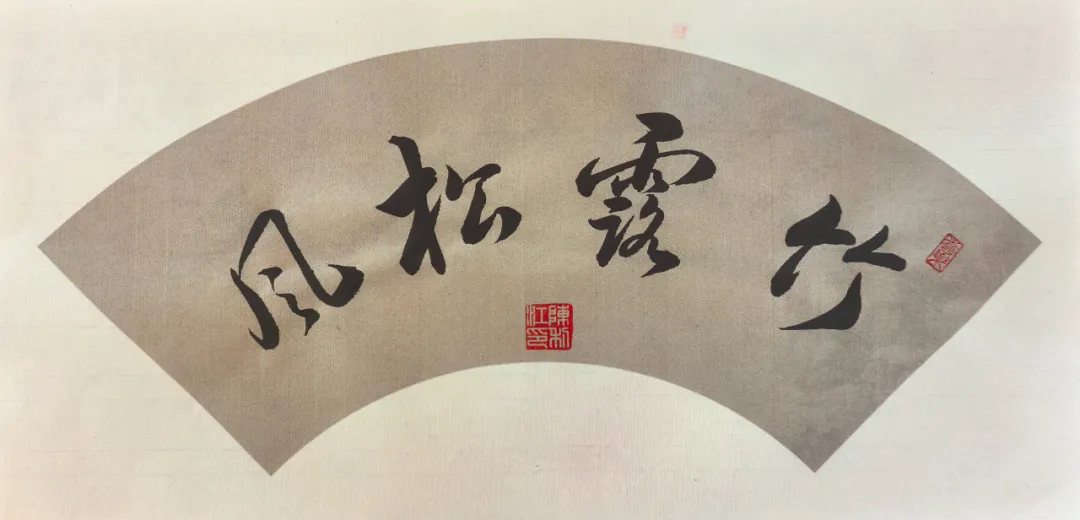 竹露松风
陳利江印